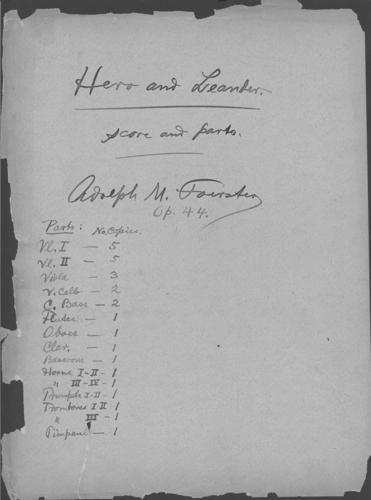 Hero and Leander.
score and parts.
Adolph M. Foerster
Op. 44.
Parts: No. Copies.
Vl. I — 5
Vl. II — 5
Viola — 3
V. Cello — 2
C. Bass — 2
Flutes — 1
Oboes — 1
Clar. — 1
Bassoons — 1
Horns I-II - 1
" III-IV - 1
Trumpets I-II - 1
Trombones I II - 1
" III - 1
Timpani — 1